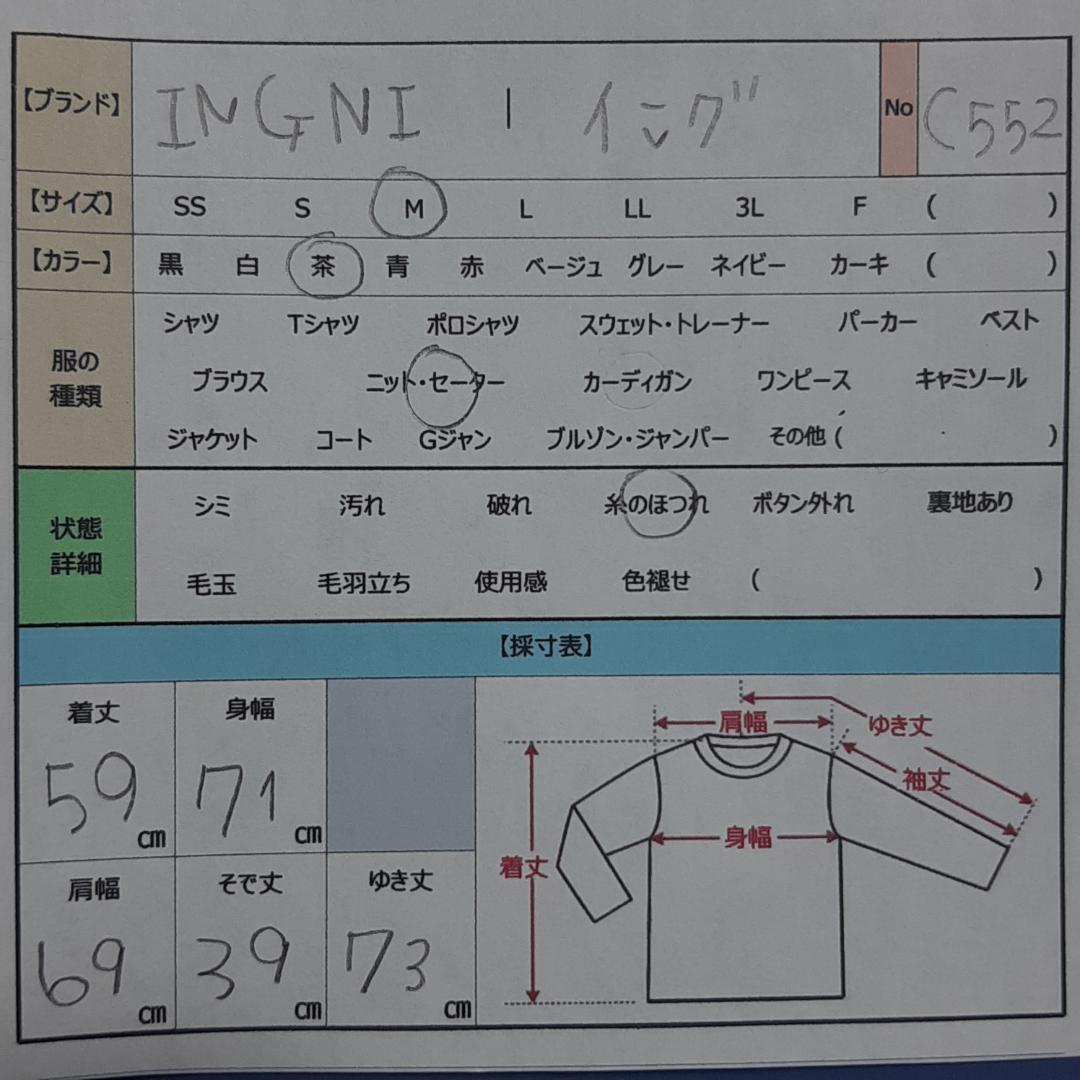 【ブランド】 INGNI ー イング No C552
【サイズ】 SS S M L LL 3L F ( )
【カラー】 黒 白 茶 青 赤 ベージュ グレー ネイビー カーキ ( )
服の
種類
シャツ Tシャツ ポロシャツ スウェット・トレーナー パーカー ベスト
ブラウス ニット・セーター カーディガン ワンピース キャミソール
ジャケット コート Gジャン ブルゾン・ジャンパー その他 ( )
状態
詳細
シミ 汚れ 破れ 糸のほつれ ボタン外れ 裏地あり
毛玉 毛羽立ち 使用感 色褪せ ( )
【採寸表】
着丈 身幅
59 cm 71 cm
肩幅 そで丈 ゆき丈
69 cm 39 cm 73 cm
肩幅 ゆき丈
袖丈
身幅
着丈